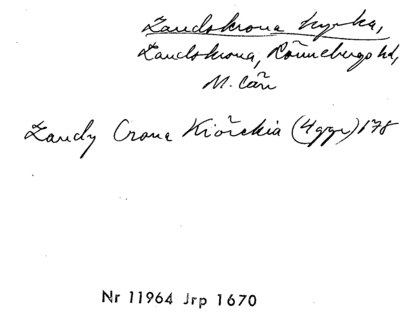 Landskrona kyrka,
Landskrona, Rönnebergs hd,
M. län
Landz Crona Kiörckia (4 ggr) 178
Nr 11964 Jrp 1670